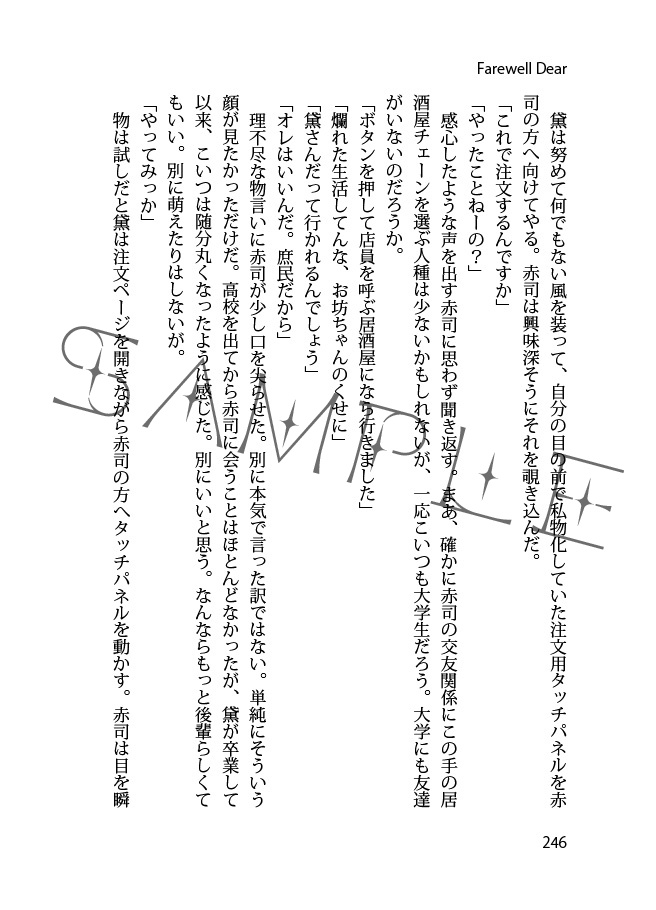 Farewell Dear
　黛は努めて何でもない風を装って、自分の目の前で私物化していた注文用タッチパネルを赤
司の方へ向けてやる。赤司は興味深そうにそれを覗き込んだ。
「これで注文するんですか」
「やったことねーの？」
　感心したような声を出す赤司に思わず聞き返す。まあ、確かに赤司の交友関係にこの手の居
酒屋チェーンを選ぶ人種は少ないかもしれないが、一応こいつも大学生だろう。大学にも友達
がいないのだろうか。
「ボタンを押して店員を呼ぶ居酒屋になら行きました」
「爛れた生活してんな、お坊ちゃんのくせに」
「黛さんだって行かれるんでしょう」
「オレはいいんだ。庶民だから」
　理不尽な物言いに赤司が少し口を尖らせた。別に本気で言った訳ではない。単純にそういう
顔が見たかっただけだ。高校を出てから赤司に会うことはほとんどなかったが、黛が卒業して
以来、こいつは随分丸くなったように感じた。別にいいと思う。なんならもっと後輩らしくて
もいい。別に萌えたりはしないが。
「やってみっか」
　物は試しだと黛は注文ページを開きながら赤司の方へタッチパネルを動かす。赤司は目を瞬
246
SAMPLE